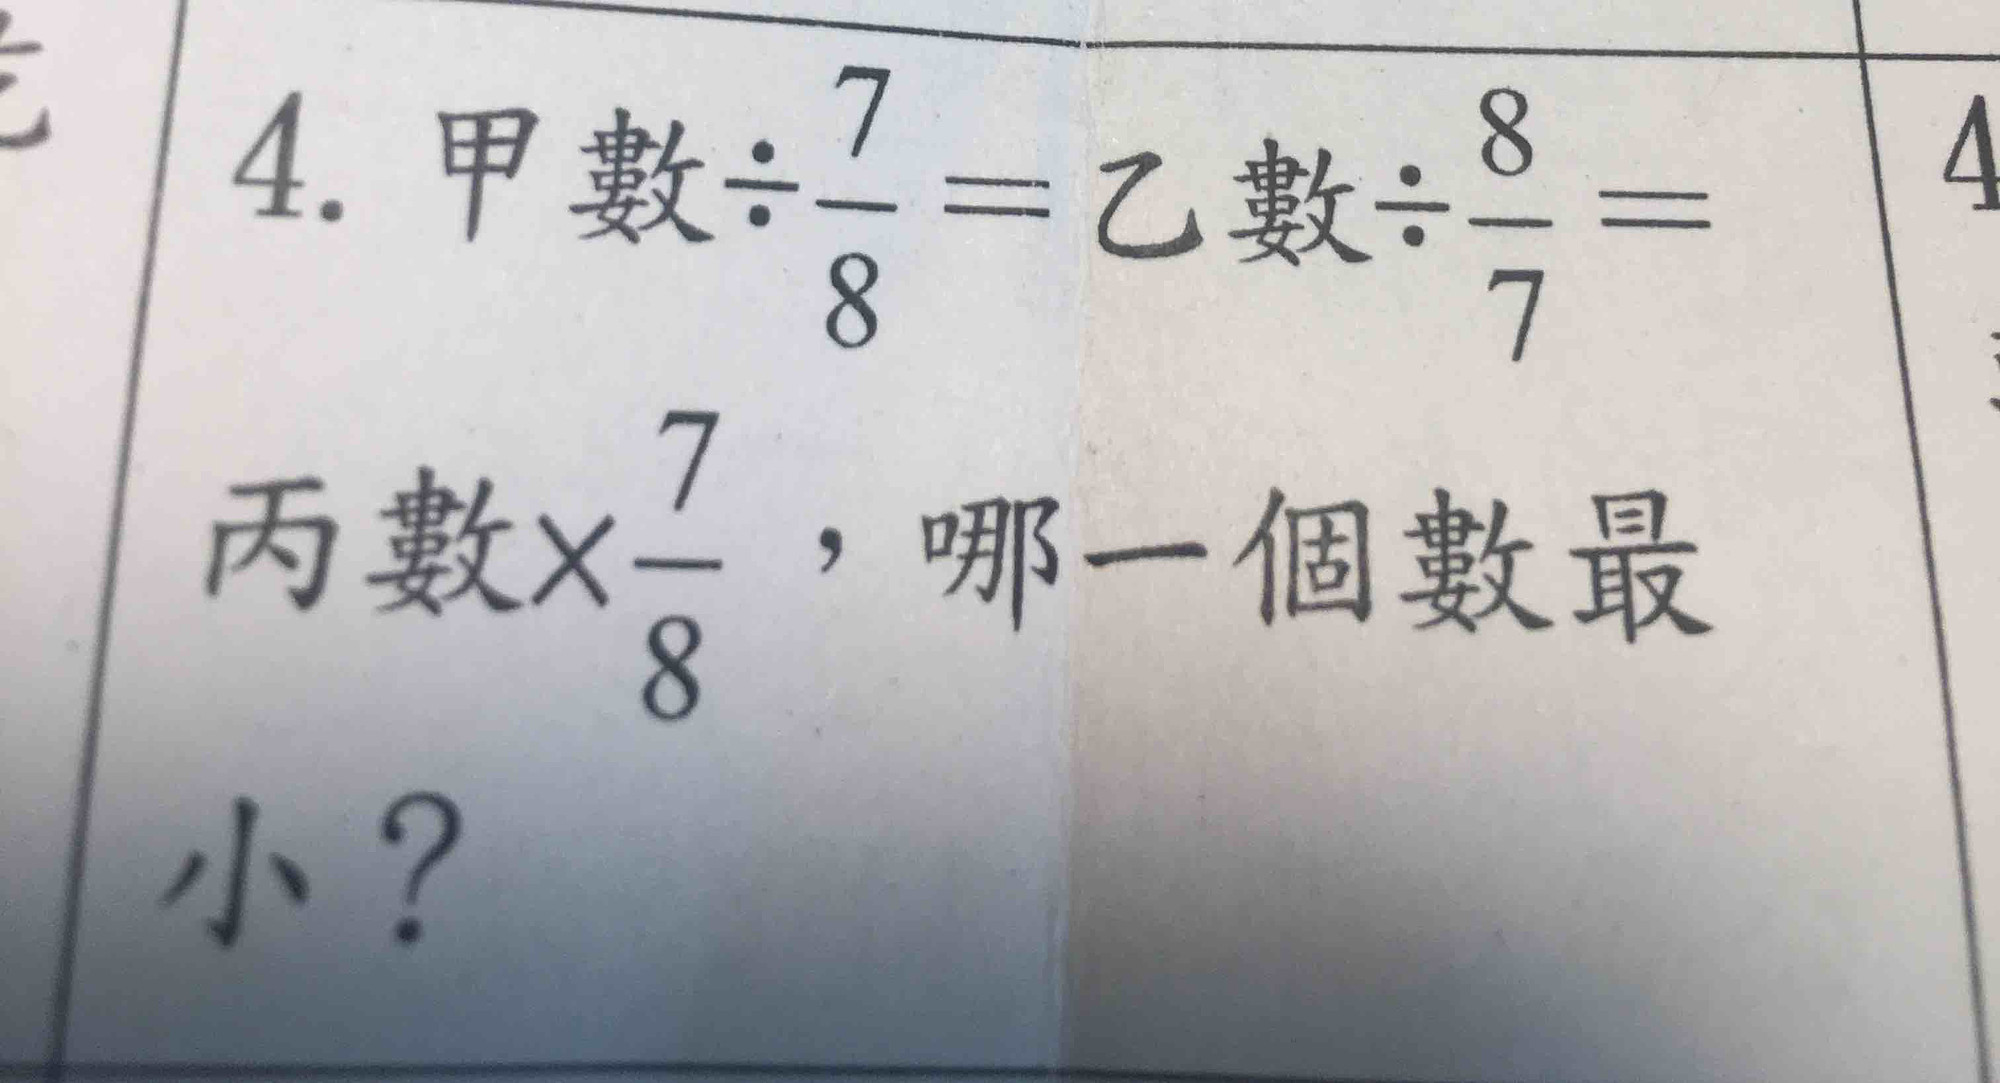 4. 甲數÷7/8=乙數÷8/7=
丙數×7/8，哪一個數最
小？
4